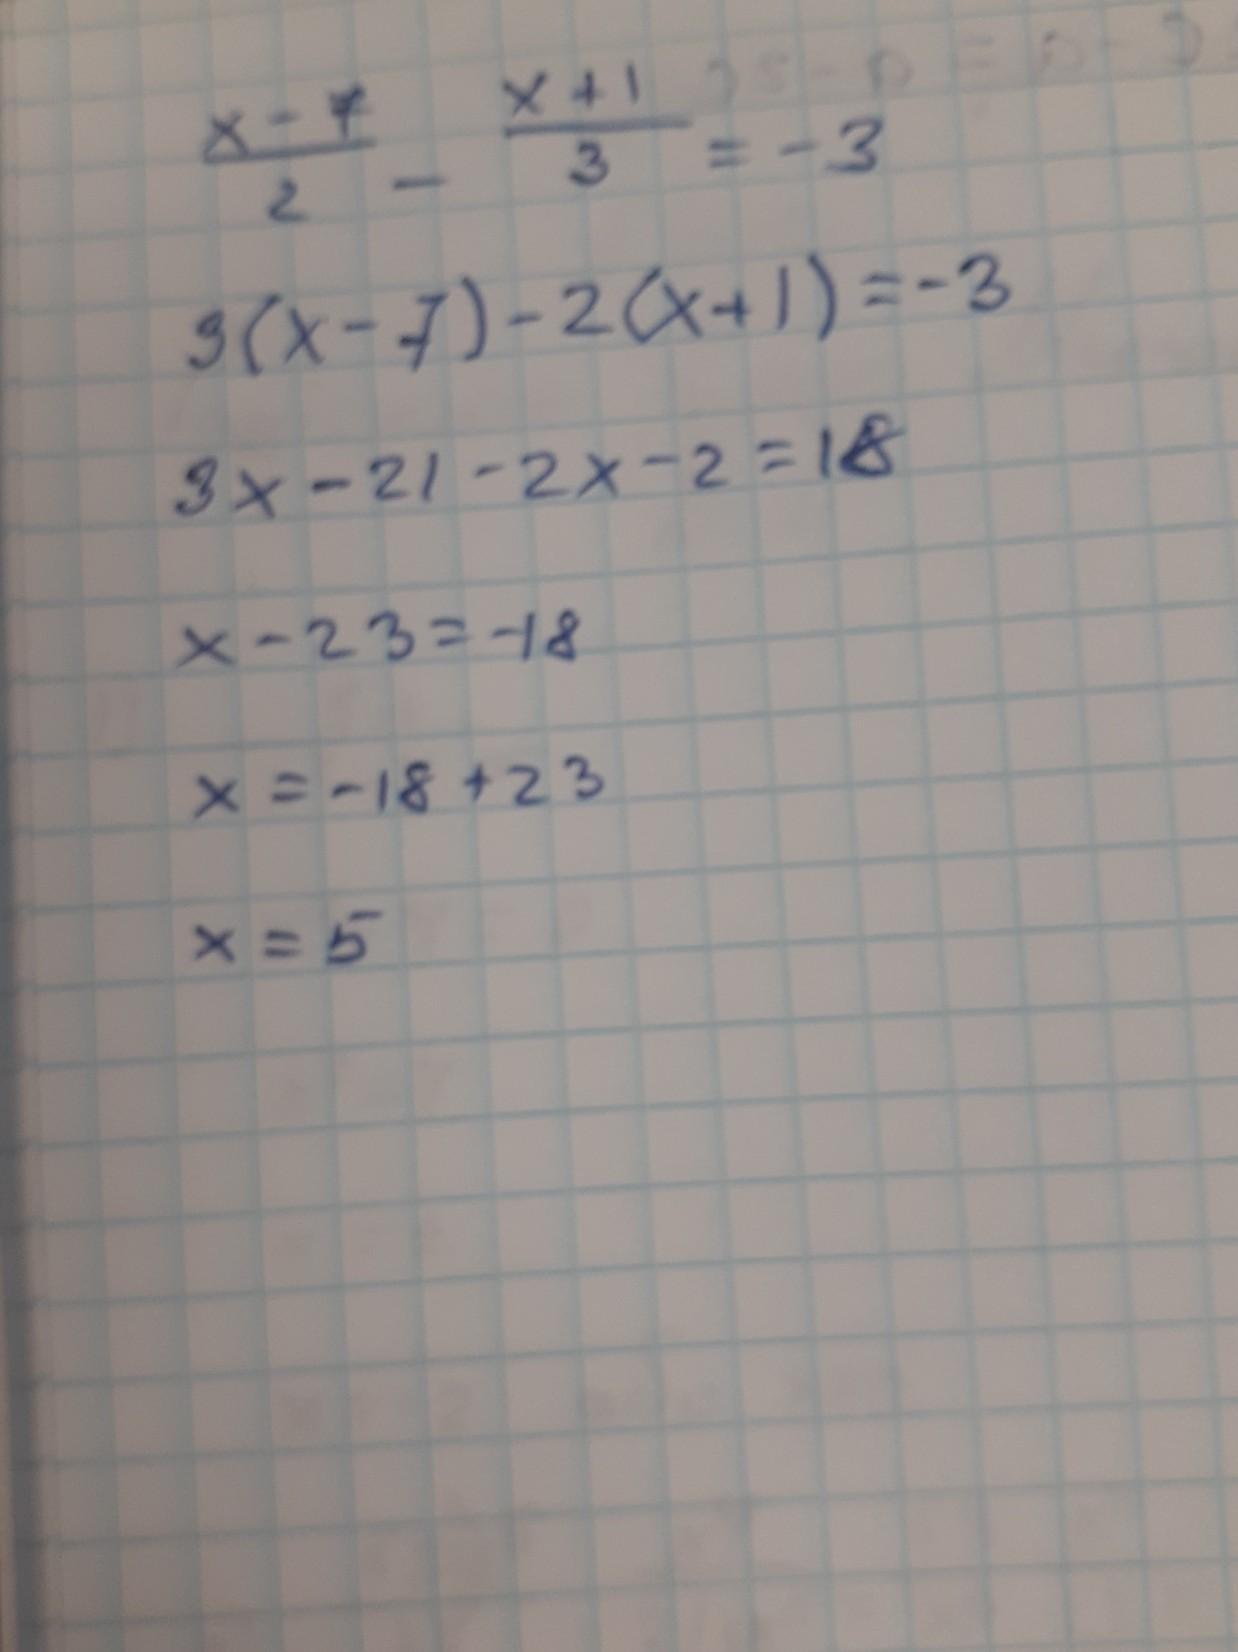 x - 7 / 2 - x + 1 / 3 = - 3
3(x - 7) - 2(x + 1) = - 3
3x - 21 - 2x - 2 = 18
x - 23 = -18
x = -18 + 23
x = 5